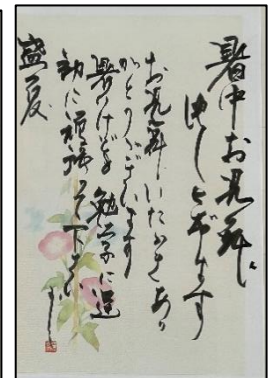 暑中お見舞い
申し上げます
お見舞いいただきあり
がとうございます
暑いけど勉学に運
動に頑張って下さい
盛夏